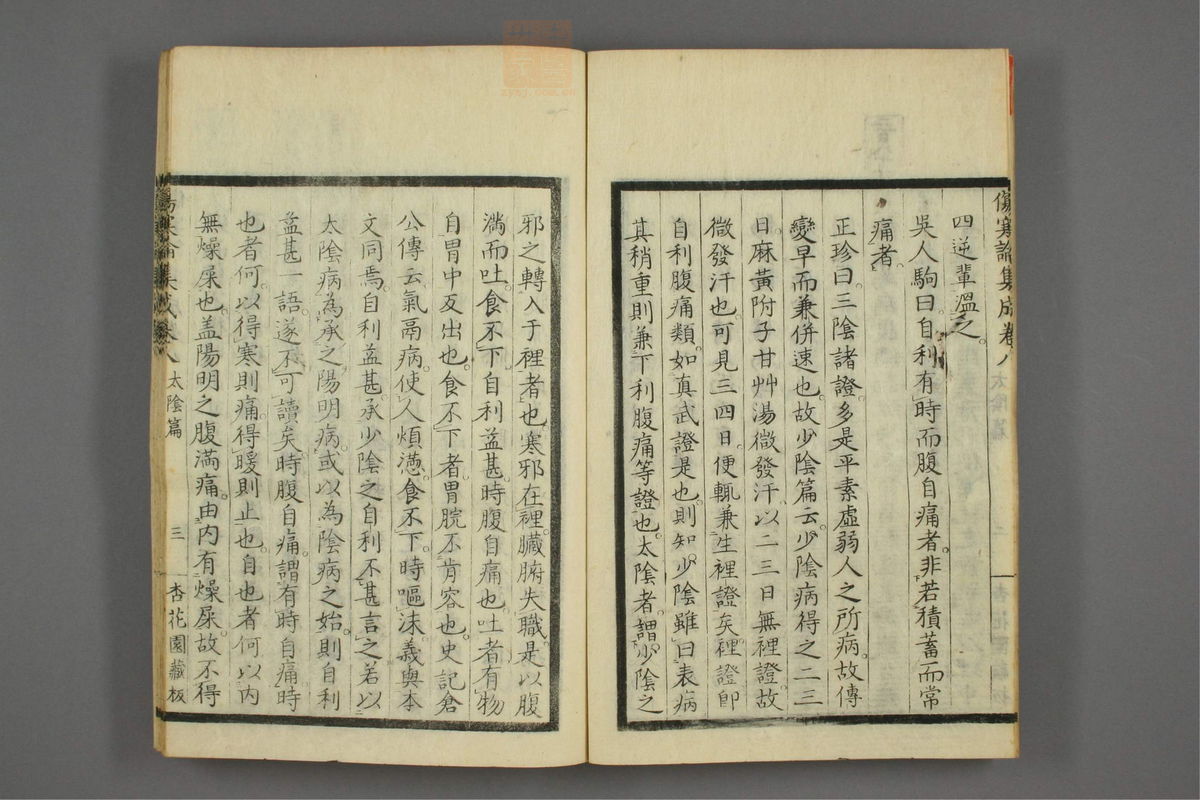 傷寒論集成卷八
四逆輩溫之。
吳人駒曰。自利有時而腹自痛者。非若積蓄而常
痛者。
正珍曰。三陰諸證。多是平素虛弱人之所病。故傳
變早而兼併速也。故少陰篇云。少陰病得之二三
日。麻黃附子甘艸湯微發汗。以二三日無裡證。故
微發汗也。可見三四日。便輒兼生裡證矣。裡證卽
自利腹痛類。如真武證是也。則知少陰雖曰表病
其稍重則兼下利腹痛等證也。太陰者。謂少陰之
邪之轉入于裡者也。寒邪在裡。臟腑失職。是以腹
滿而吐。食不下。自利益甚。時腹自痛也。吐者有物
自胃中反出也。食不下者。胃脘不肯容也。史記倉
公傳云。氣鬲病。使人煩懣。食不下。時嘔沫。義與本
文同焉。自利益甚。承少陰之自利不甚言之。若以
太陰病為承之陽明病。或以為陰病之始。則自利
益甚一語。遂不可讀矣。時腹自痛。謂有時自痛。時
也者何。以得寒則痛。得暖則止也。自也者何。以內
無燥屎也。盖陽明之腹滿痛。由內有燥屎。故不得
太陰篇
三
杏花園藏板